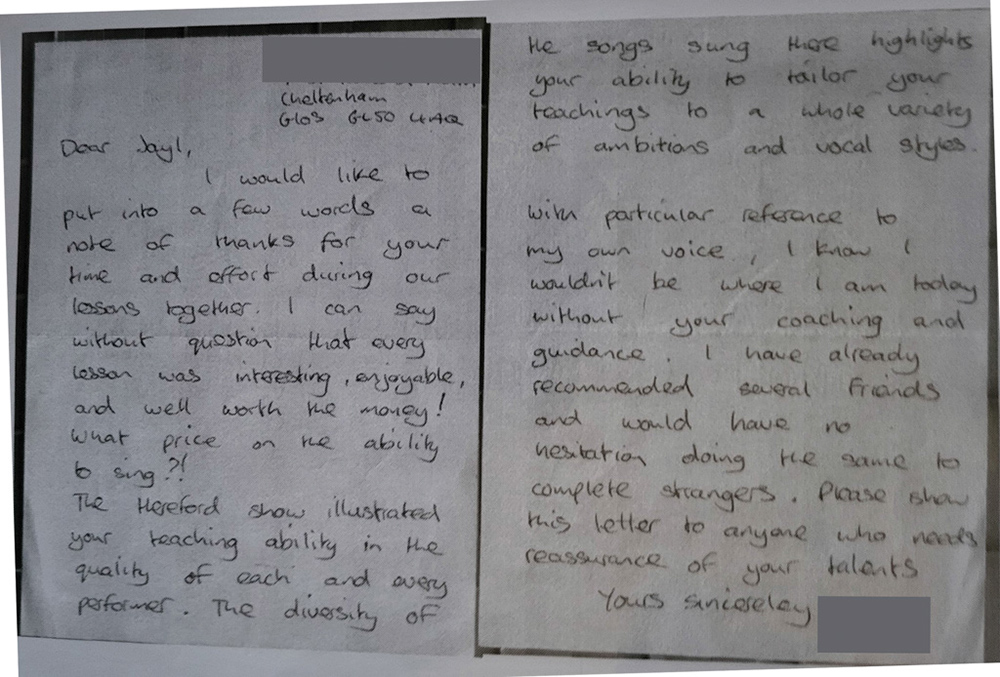 Cheltenham
Glos GL50 4HQ
Dear Jayl,
I would like to
put into a few words a
note of thanks for your
time and effort during our
lessons together. I can say
without question that every
lesson was interesting, enjoyable,
and well worth the money!
What price on the ability
to sing?!
The Hereford show illustrated
your teaching ability in the
quality of each and every
performer. The diversity of
the songs sung there highlights
your ability to tailor your
teachings to a whole variety
of ambitions and vocal styles.
With particular reference to
my own voice, I know I
wouldn't be where I am today
without your coaching and
guidance. I have already
recommended several friends
and would have no
hesitation doing the same to
complete strangers. Please show
this letter to anyone who needs
reassurance of your talents
Yours sincereley